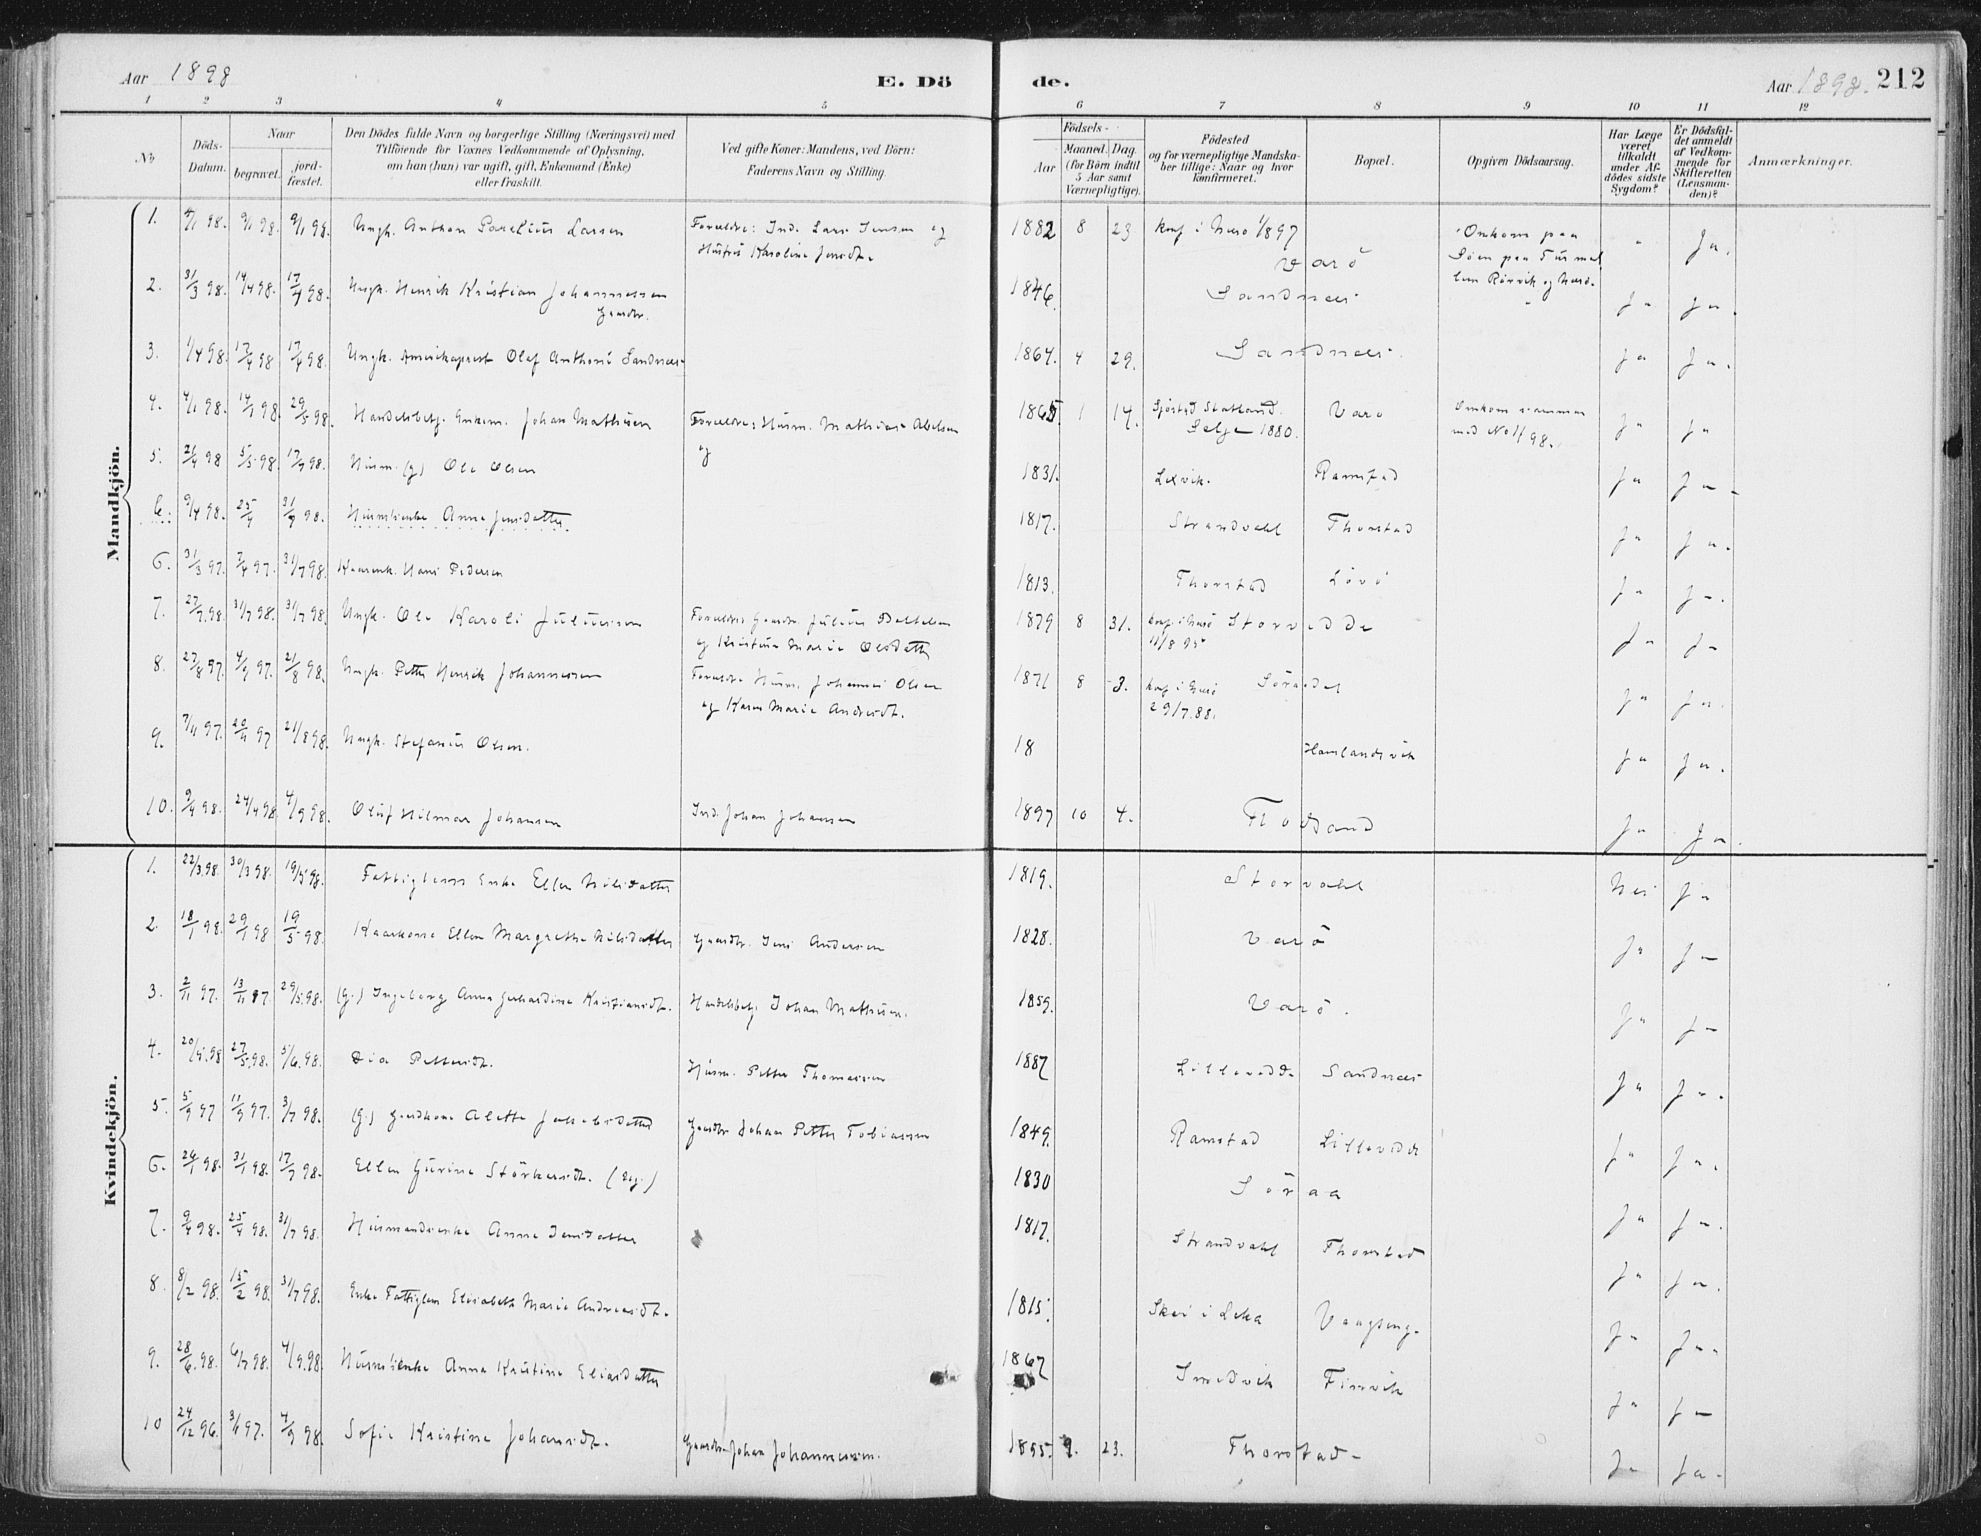 Aar 1898
E. Dö
de.
Aar 1898. 212
1 2 3 4 5 6 7 8 9 10 11 12
No
Döds-Datum.
Naar
begravet.
jord-fæstet.
Den Dödes fulde Navn og borgerlige Stilling (Næringsvei) med
Tilföiende for Voxnes Vedkommende af Oplysning,
om han (hun) var ugift, gift, Enkemand (Enke)
eller fraskilt.
Ved gifte Koner: Mandens, ved Börn:
Faderens Navn og Stilling.
Födsels-
Aar
Maaned. Dag.
(for Börn indtil
5 Aar samt
Værnepligtige).
Födested
og for værnepligtige Mandska-
ber tillige: Naar og hvor
konfirmeret.
Bopæl.
Opgiven Dödsaarsag.
Har Læge
været
tilkaldt
under Af-
dödes sidste
Sygdom?
Er Dödsfal-
det anmeldt
af Vedkom-
mende for
Skifteretten
(Lensman-
den)?
Anmærkninger.
Mandkjön.
1. 4/1 98. 9/1 98. 9/1 98. Ungk. Anthon Parelius Larsen Forældre: Ind. Lars Jensen og 1882 8 23 konf i Nærö 1/897 Omkom paa Ja.
Hustru Karoline Jensdt. Varö Söen paa Tur mel
2. 31/3 98. 14/4 98. 17/4 98. Ungk. Henrik Kristian Johannessen 1846. Sandnees lem Rörvik og Nærö. Ja Ja.
Gaardbr.
3. 1/4 98. 17/4 98 17/4 98. Ungk. Olaf Anthoni Sandnees 1864. 4 29. Sandnees. Ja Ja.
4. 4/1 98. 14/1 98. 29/5 98. Handelsbetj. Enkem. Johan Mathisen Forældre: Husm. Mathias Abelsen 1865 1 14. Sjöstad Statland. Varö Omkom sammen Ja Ja
og Selje 1880. med No 1/98.
5. 21/4 98 5/5 98. 17/7 98. Husm. (g) Ole Olsen 1831. Lexvik. Ramstad Ja Ja
6. 9/4 98. 25/4 31/7 98. Husmdsenke Anne Jensdatter. 1817. Strandvahl Thorstad Ja Ja.
6. 31/3 97. 7/4 97. 31/7 98. Kaarenk. Hans Pedersen 1813. Thorstad Lövö Ja Ja.
7. 27/7 98. 31/7 98. 31/7 98. Ungk. Ole Karoli Juliussen Forældre Gaardbr. Julius 1879 8 31. konf. i Nærö Storvedde Ja Ja
og Kristine Marie Olsdatter 11/8 95
8. 27/8 97. 4/9 97. 21/8 98. Ungk. Petter Henrik Johannessen Forældre Husm. Johannes Olsen 1871 8 3. konf i Nærö Ja Ja.
og Karen Marie Andersdt. 29/7.88.
9. 7/11 97. 20/11 97 21/8 98. Ungk. Stefanus Olsen. 18 Hamlandsvik Ja Ja.
10. 9/4 98. 24/4 98 4/9 98. Oluf Hilmar Johansen Ind. Johan Johansen 1897 10 4. Flosand Ja Ja.
Kvindekjön.
1. 22/3.98. 30/3 98. 19/5 98. Fattiglem Enke Ellen Nilsdatter 1819. Storvahl Nei Ja
2. 18/1 98. 29/1 98 19/5 98. Kaarkone Ellen Margrethe Nilsdatter Gaardbr. Jens Andersen 1828. Varö Ja Ja
3. 2/11 97. 13/11 97 29/5.98. (g.) Ingeborg Anna Gerhardine Kristiansdt. Handelsbetj Johan Mathisen. 1859. Varö. Ja Ja
4. 20/5.98 27/5.98. 5/6.98. Dia Pettersdt. Husm. Petter Thomassen 1887 Lillevedde Sandnees Ja Ja.
5. 5/9 97 11/9 97. 3/7 98. (g.) Gaardkone Alette Jakobsdatter Gaardbr Johan Petter Tobiassen 1849. Ramstad Lillevedde Ja Ja.
6. 24/1 98. 31/1 98. 17/7 98. Ellen Gurine Störkersdt. (Ug.) 1830 Söraa Ja Ja.
7. 9/4 98. 25/4 98. 31/7 98. Husmandsenke Anne Jensdatter 1817. Strandvahl Thorstad Ja Ja.
8. 8/2 98. 15/2 98. 31/7 98. Enke Fattiglem Elisabeth Marie Andreasdt. 1815. Skei i Leka Vaagseng. Ja Ja.
9. 28/6.98. 6/7 98. 4/9.98. Husmdsenke Anna Kristine Eliasdatter 1867 Smedvik Finvik Ja Ja
10 24/12 96. 3/1 97. 4/9 98. Sofie Kristine Johansdt. Gaardbr Johan Johannessen. 1855. 9. 23. Thorstad. Ja Ja.